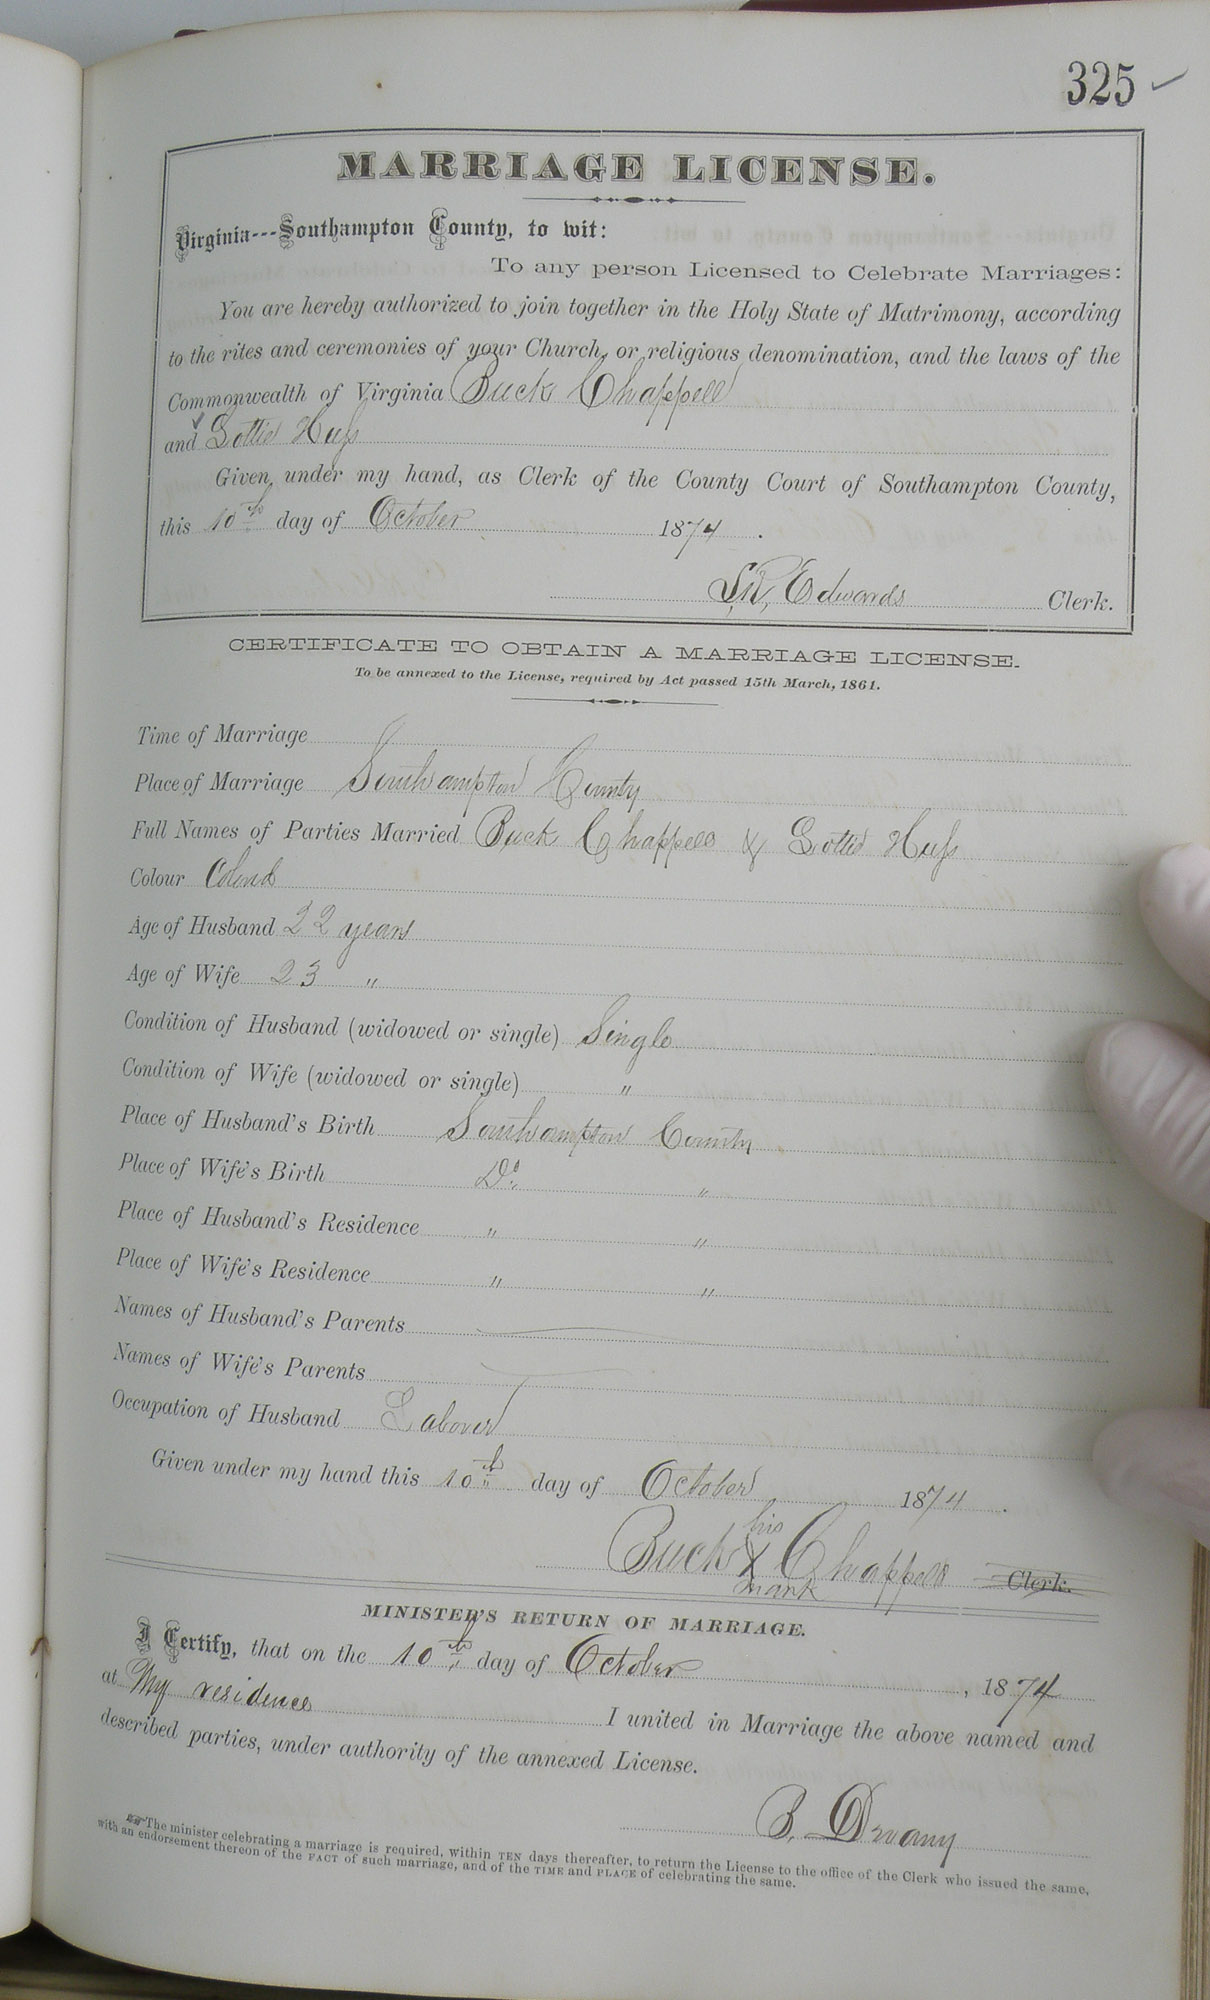 325
MARRIAGE LICENSE.
Virginia---Southampton County, to wit:
To any person Licensed to Celebrate Marriages:
You are hereby authorized to join together in the Holy State of Matrimony, according
to the rites and ceremonies of your Church, or religious denomination, and the laws of the
Commonwealth of Virginia Buck Chappell
and Lottie
Given under my hand, as Clerk of the County Court of Southampton County,
this 10th day of October 1874.
L.R. Edwards Clerk.
CERTIFICATE TO OBTAIN A MARRIAGE LICENSE.
To be annexed to the License, required by Act passed 15th March, 1861.
Time of Marriage
Place of Marriage Southampton County
Full Names of Parties Married Buck Chappell & Lottie
Colour Colored
Age of Husband 22 years
Age of Wife 23 "
Condition of Husband (widowed or single) Single
Condition of Wife (widowed or single) "
Place of Husband's Birth Southampton County
Place of Wife's Birth Do. "
Place of Husband's Residence " "
Place of Wife's Residence " "
Names of Husband's Parents
Names of Wife's Parents
Occupation of Husband Laborer
Given under my hand this 10th day of October 1874.
his
Buck X Chappell Clerk.
mark
MINISTER'S RETURN OF MARRIAGE.
I Certify, that on the 10th day of October, 1874
at My residence I united in Marriage the above named and
described parties, under authority of the annexed License.
The minister celebrating a marriage is required, within TEN days thereafter, to return the License to the office of the Clerk who issued the same,
with an endorsement thereon of the FACT of such marriage, and of the TIME and PLACE of celebrating the same.